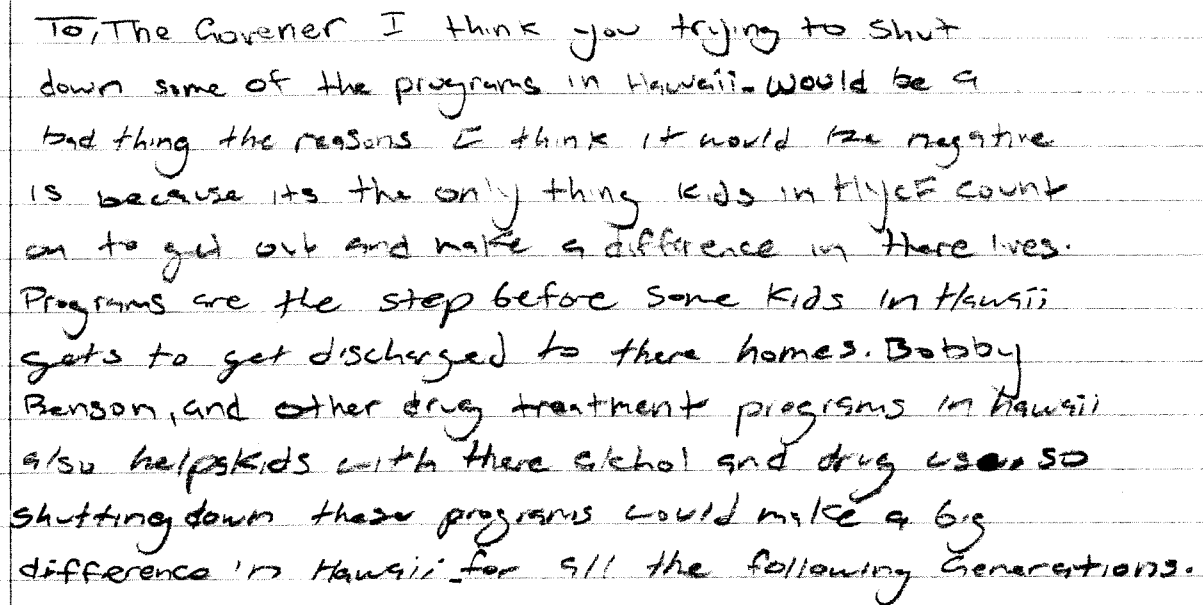 To, The Govener I think you trying to shut
down some of the programs in Hawaii. would be a
bad thing the reasons I think it would be negative
is because its the only thing kids in HYCF count
on to get out and make a difference in there lives.
Programs are the step before some kids in Hawaii
gets to get discharged to there homes. Bobby
Benson, and other drug treatment programs in Hawaii
also helps kids with there alchol and drug use. so
shutting down these programs could make a big
difference in Hawaii for all the following Generations.